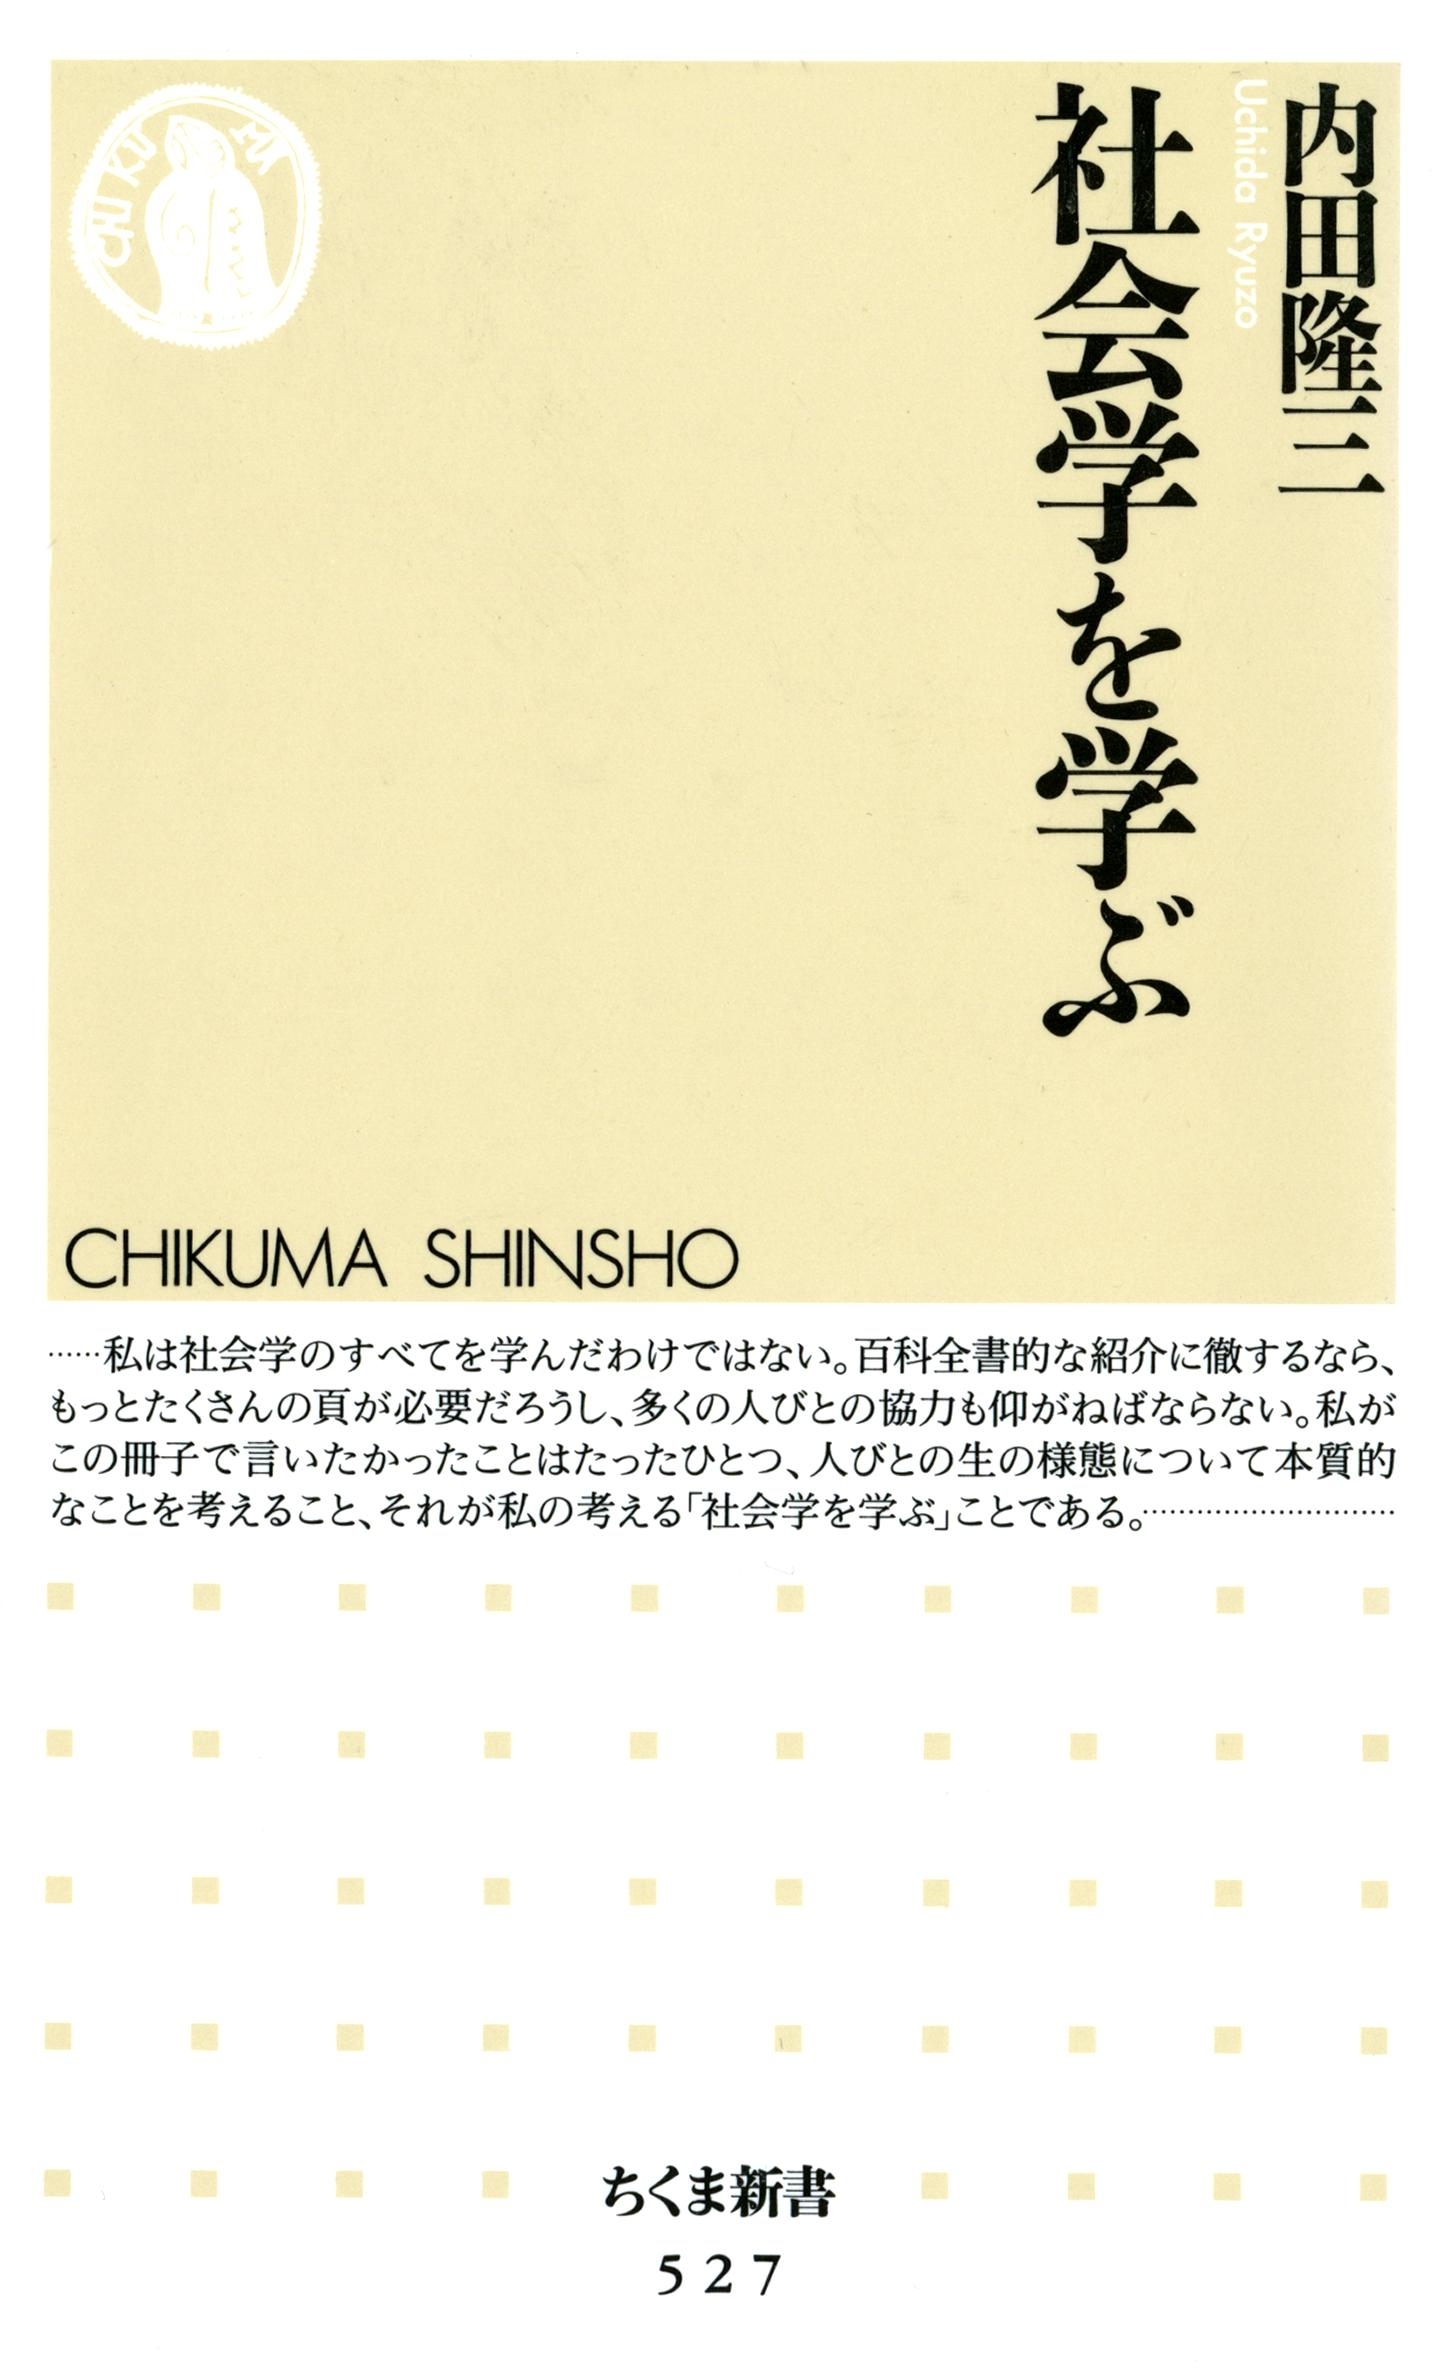 内田隆三
Uchida Ryuzo
社会学を学ぶ
CHIKUMA
CHIKUMA SHINSHO
……私は社会学のすべてを学んだわけではない。百科全書的な紹介に徹するなら、
もっとたくさんの頁が必要だろうし、多くの人びとの協力も仰がねばならない。私が
この冊子で言いたかったことはたったひとつ、人びとの生の様態について本質的
なことを考えること、それが私の考える「社会学を学ぶ」ことである。…………………………
ちくま新書
527